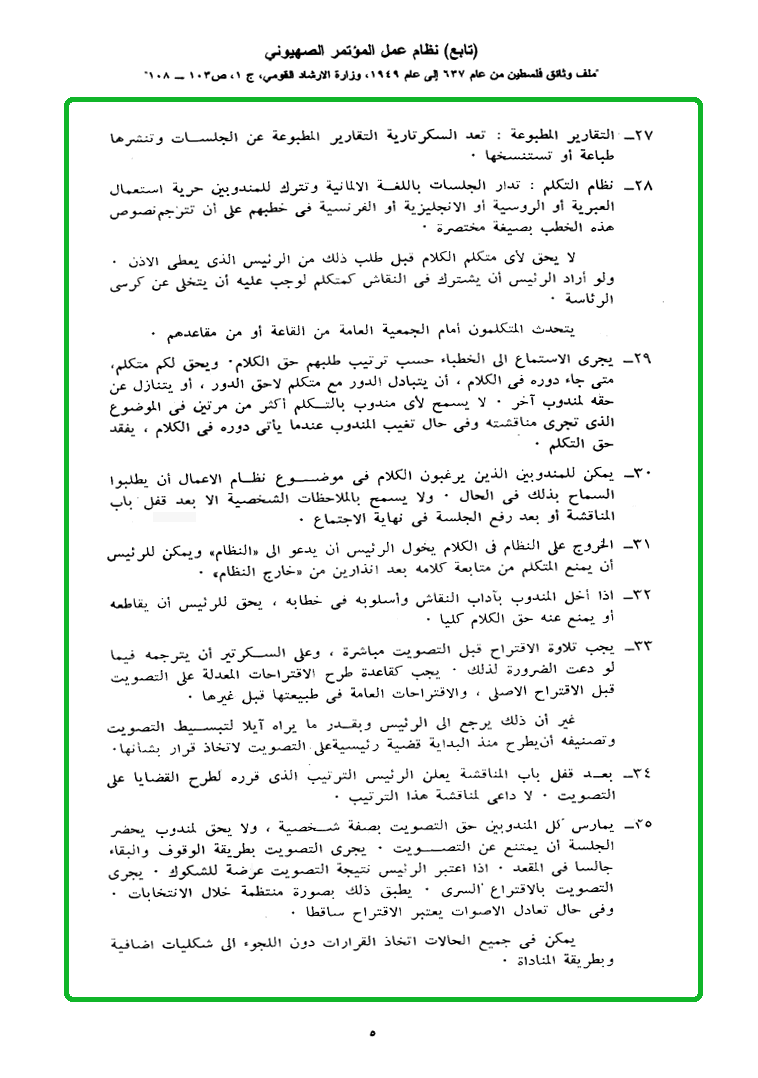 (تابع) نظام عمل المؤتمر الصهيوني
"ملف وثائق فلسطين من عام ٦٣٧ إلى عام ١٩٤٩، وزارة الارشاد القومي، ج ١، ص١٠٣ ــ ١٠٨"
٢٧ــ التقارير المطبوعة : تعد السكرتارية التقارير المطبوعة عن الجلسات وتنشرها
طباعة أو تستنسخها ٠
٢٨ــ نظام التكلم : تدار الجلسات باللغة الالمانية وتترك للمندوبين حرية استعمال
العبرية أو الروسية أو الانجليزية أو الفرنسية فى خطبهم على أن تترجم نصوص
هذه الخطب بصيغة مختصرة ٠
لا يحق لأى متكلم الكلام قبل طلب ذلك من الرئيس الذى يعطى الاذن ٠
ولو أراد الرئيس أن يشترك فى النقاش كمتكلم لوجب عليه أن يتخلى عن كرسى
الرئاسة ٠
يتحدث المتكلمون أمام الجمعية العامة من القاعة أو من مقاعدهم ٠
٢٩ــ يجرى الاستماع الى الخطباء حسب ترتيب طلبهم حق الكلام٠ ويحق لكم متكلم،
متى جاء دوره فى الكلام ، أن يتبادل الدور مع متكلم لاحق الدور ، أو يتنازل عن
حقه لمندوب آخر ٠ لا يسمح لأى مندوب بالتكلم أكثر من مرتين فى الموضوع
الذى تجرى مناقشته وفى حال تغيب المندوب عندما يأتى دوره فى الكلام ، يفقد
حق التكلم ٠
٣٠ــ يمكن للمندوبين الذين يرغبون الكلام فى موضوع نظام الاعمال أن يطلبوا
السماح بذلك فى الحال ٠ ولا يسمح بالملاحظات الشخصية الا بعد قفل باب
المناقشة أو بعد رفع الجلسة فى نهاية الاجتماع ٠
٣١ــ الخروج على النظام فى الكلام يخول الرئيس أن يدعو الى «النظام» ويمكن للرئيس
أن يمنع المتكلم من متابعة كلامه بعد انذارين من «خارج النظام» ٠
٣٢ــ اذا أخل المندوب بآداب النقاش وأسلوبه فى خطابه ، يحق للرئيس أن يقاطعه
أو يمنع عنه حق الكلام كليا ٠
٣٣ــ يجب تلاوة الاقتراح قبل التصويت مباشرة ، وعلى السكرتير أن يترجمه فيما
لو دعت الضرورة لذلك ٠ يجب كقاعدة طرح الاقتراحات المعدلة على التصويت
قبل الاقتراح الاصلى ، والاقتراحات العامة فى طبيعتها قبل غيرها ٠
غير أن ذلك يرجع الى الرئيس وبقدر ما يراه آيلا لتبسيط التصويت
وتصنيفه أن يطرح منذ البداية قضية رئيسية على التصويت لاتخاذ قرار بشأنها٠
٣٤ــ بعد قفل باب المناقشة يعلن الرئيس الترتيب الذى قرره لطرح القضايا على
التصويت ٠ لا داعى لمناقشة هذا الترتيب ٠
٣٥ــ يمارس كل المندوبين حق التصويت بصفة شخصية ، ولا يحق لمندوب يحضر
الجلسة أن يمتنع عن التصويت ٠ يجرى التصويت بطريقة الوقوف والبقاء
جالسا فى المقعد ٠ اذا اعتبر الرئيس نتيجة التصويت عرضة للشكوك ٠ يجرى
التصويت بالاقتراع السرى ٠ يطبق ذلك بصورة منتظمة خلال الانتخابات ٠
وفى حال تعادل الاصوات يعتبر الاقتراح ساقطا ٠
يمكن فى جميع الحالات اتخاذ القرارات دون اللجوء الى شكليات اضافية
وبطريقة المناداة ٠
٥